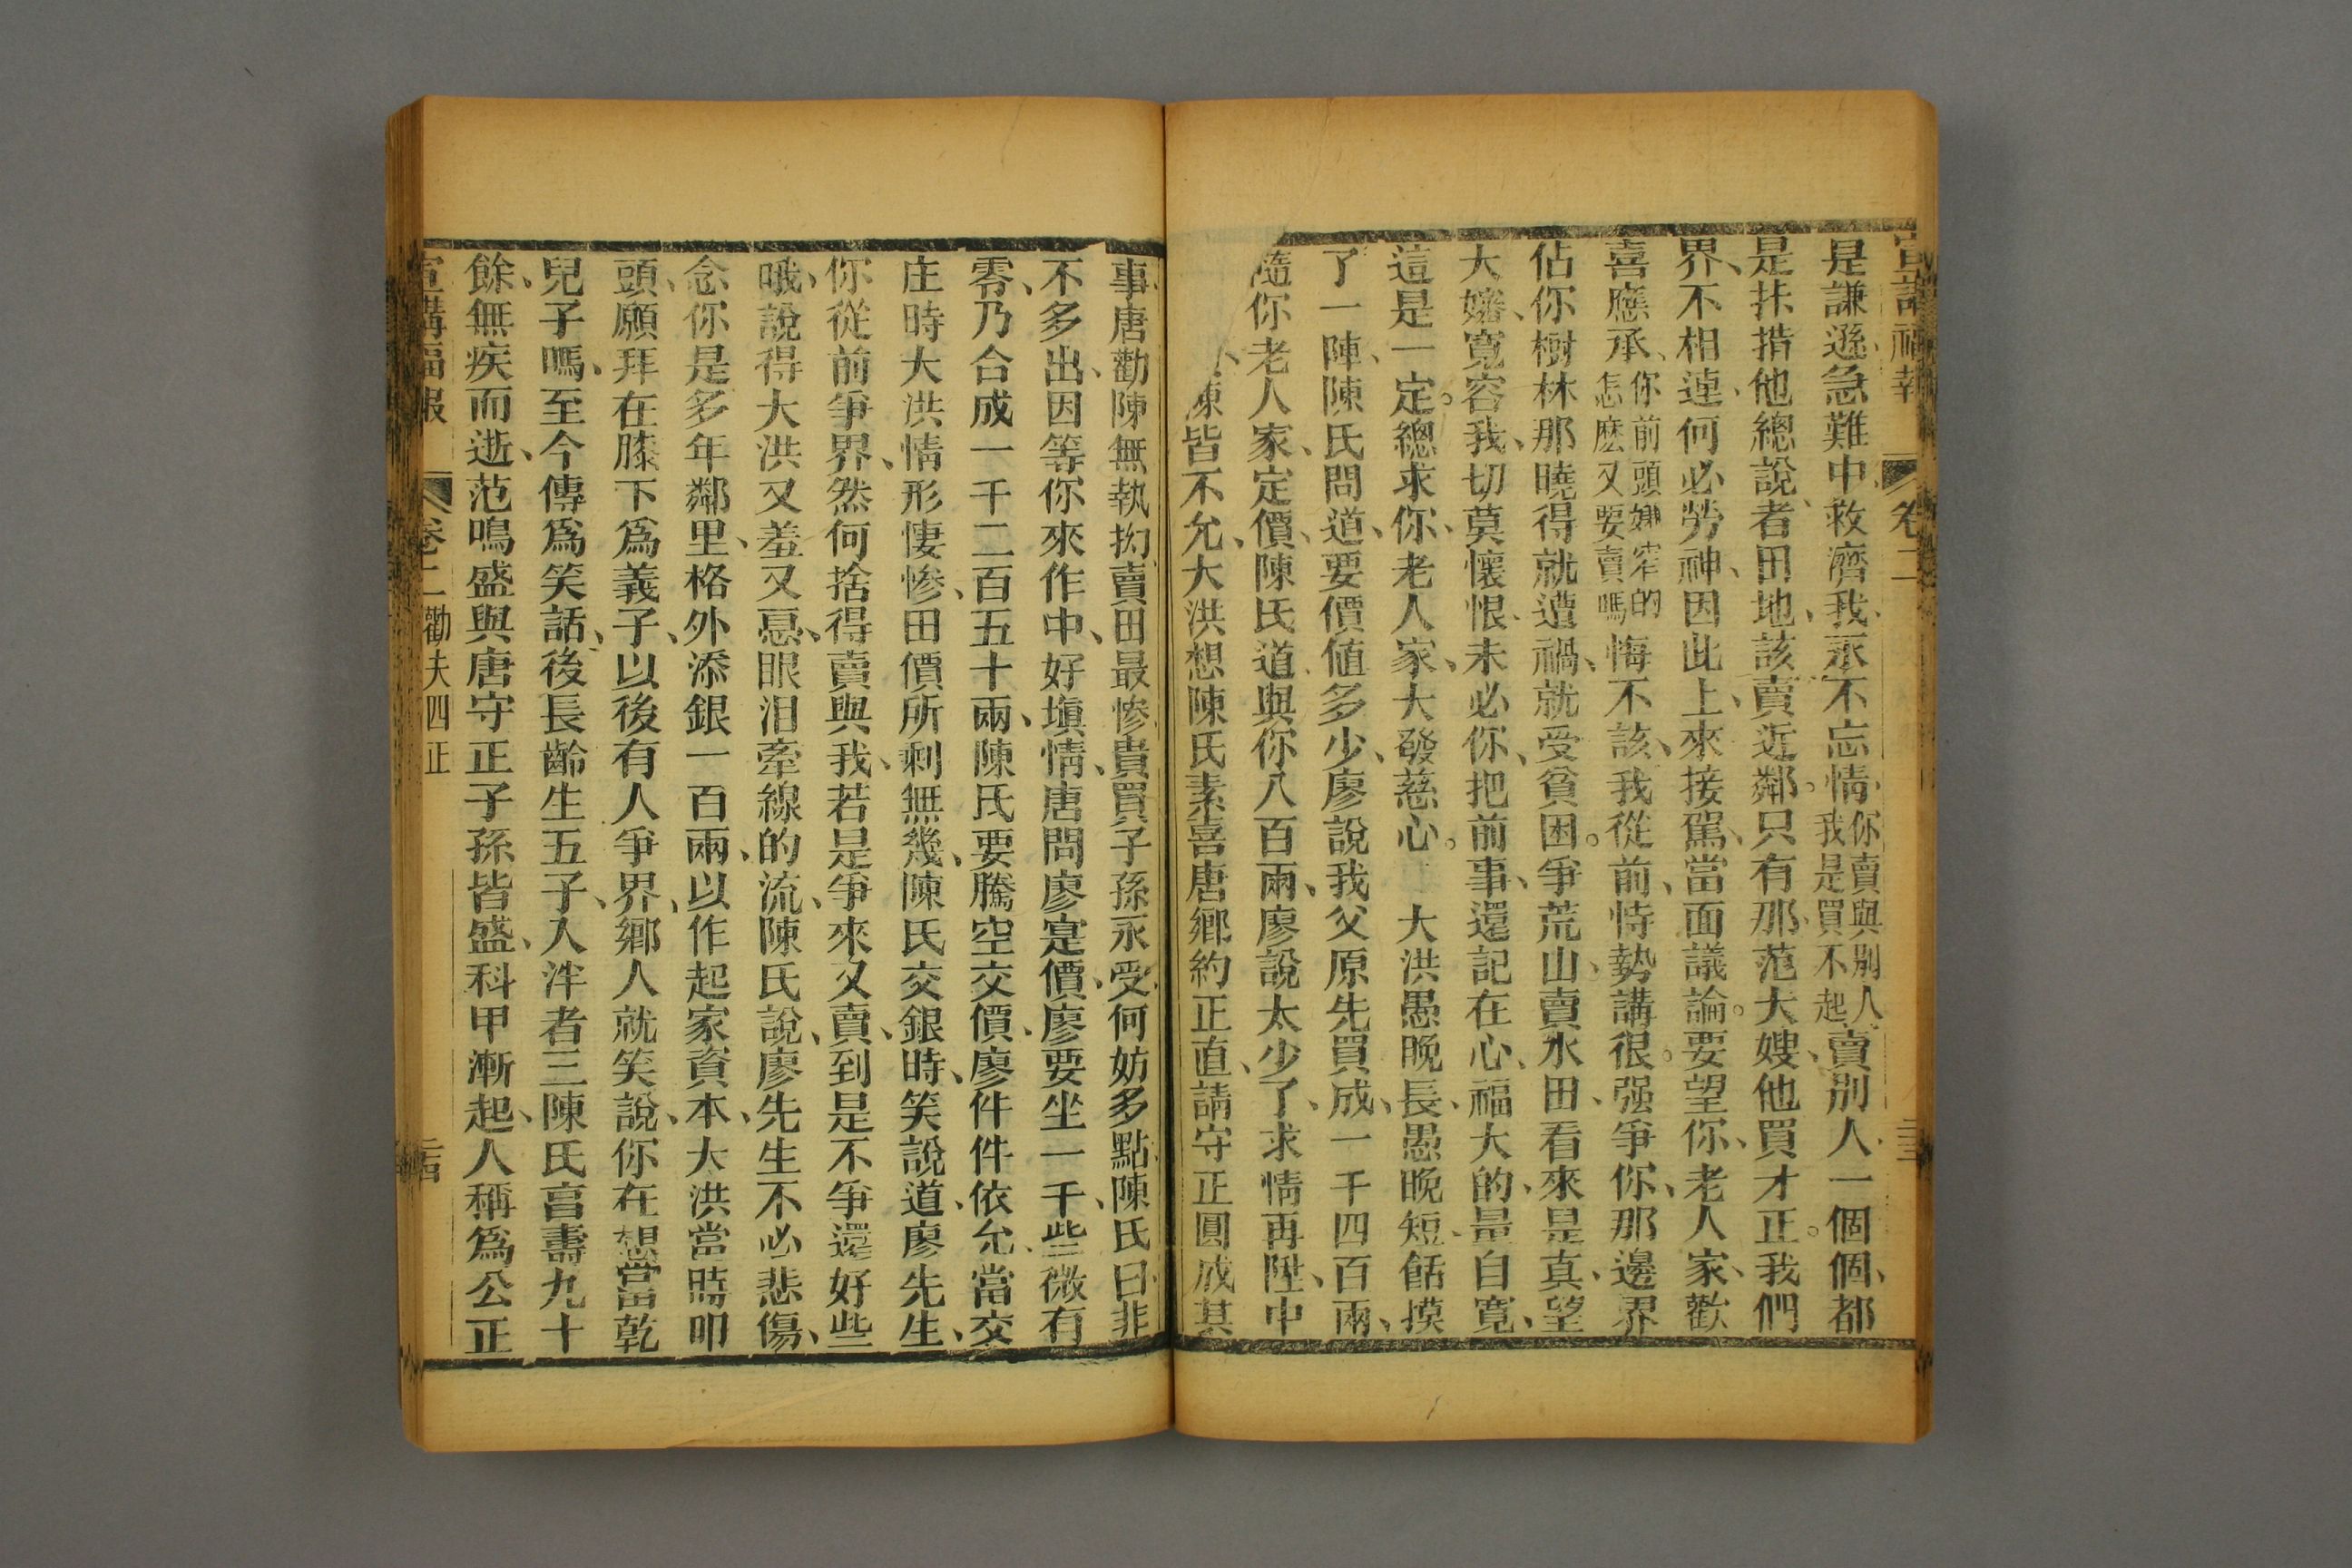 宣講福報 卷二
是謙遜、急難中、救濟我、永不忘情、你賣與別人我是買不起賣別人、一個個、都
是扶措他總說、者田地、該賣近鄰。只有那、范大嫂、他買才正。我們
界、不相連、何必勞神、因此上、來接駕、當面議論。要望你、老人家、歡
喜應承、你前頭嫌窄的怎麽又要賣嗎悔不該、我從前、恃勢講很。强爭你、那邊界
佔你樹林那曉得就遭禍、就受貧困。爭荒山、賣水田、看來是真、望
大嬸、寬容我、切莫懷恨、未必你、把前事、還記在心、福大的、量自寬、
這是一定。總求你、老人家、大發慈心。大洪愚晚長、愚晚短、餂摸
了一陣、陳氏問道、要價値多少、廖說我父原先買成、一千四百兩、
隨你老人家、定價、陳氏道與你八百兩、廖說太少了、求情再陞、中
陳皆不允、大洪想陳氏素喜唐鄉約正直、請守正圓成其
事唐勸陳無執拗賣田最慘貴買子孫永受何妨多點陳氏曰非
不多出、因等你來作中、好塡情、唐問廖寔價、廖要坐一千、些微有
零、乃合成一千二百五十兩、陳氏要騰空交價、廖件件依允、當交
庄時大洪情形悽慘、田價所剩無幾、陳氏交銀時、笑說道、廖先生、
你從前爭界、然何捨得賣與我、若是爭來又賣、到是不爭還好些
哦、說得大洪又羞又惡、眼泪牽線的流、陳氏說、廖先生不必悲傷、
念你是多年鄰里、格外添銀一百兩、以作起家資本、大洪當時叩
頭、願拜在膝下爲義子、以後有人爭界、鄉人就笑說、你在想當乾
兒子嗎、至今傳爲笑話、後長齡生五子、入泮者三陳氏言壽九十
餘、無疾而逝、范鳴盛與唐守正子孫皆盛、科甲漸起、人稱爲公正
宣講福報 卷二 勸夫四正